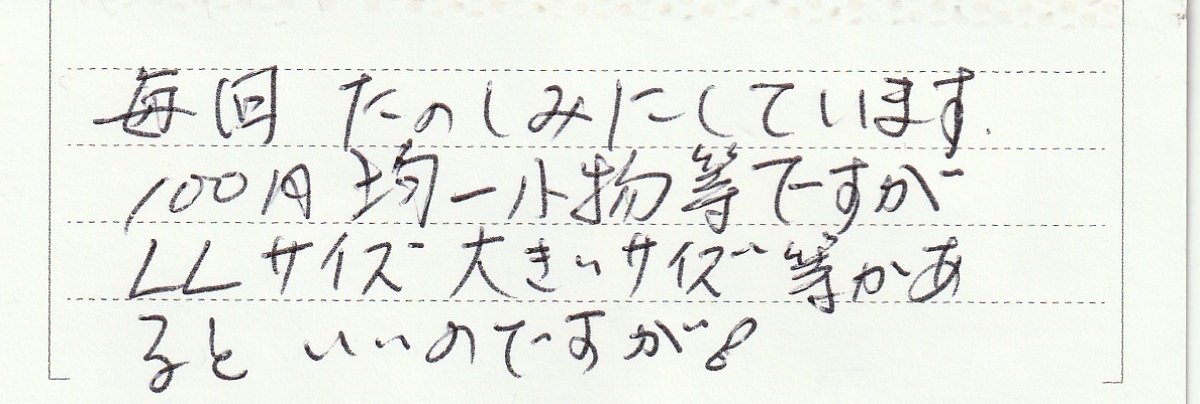 毎回 たのしみにしています.
100円均一小物等ですが
LLサイズ 大きいサイズ等があ
るといいのですが。